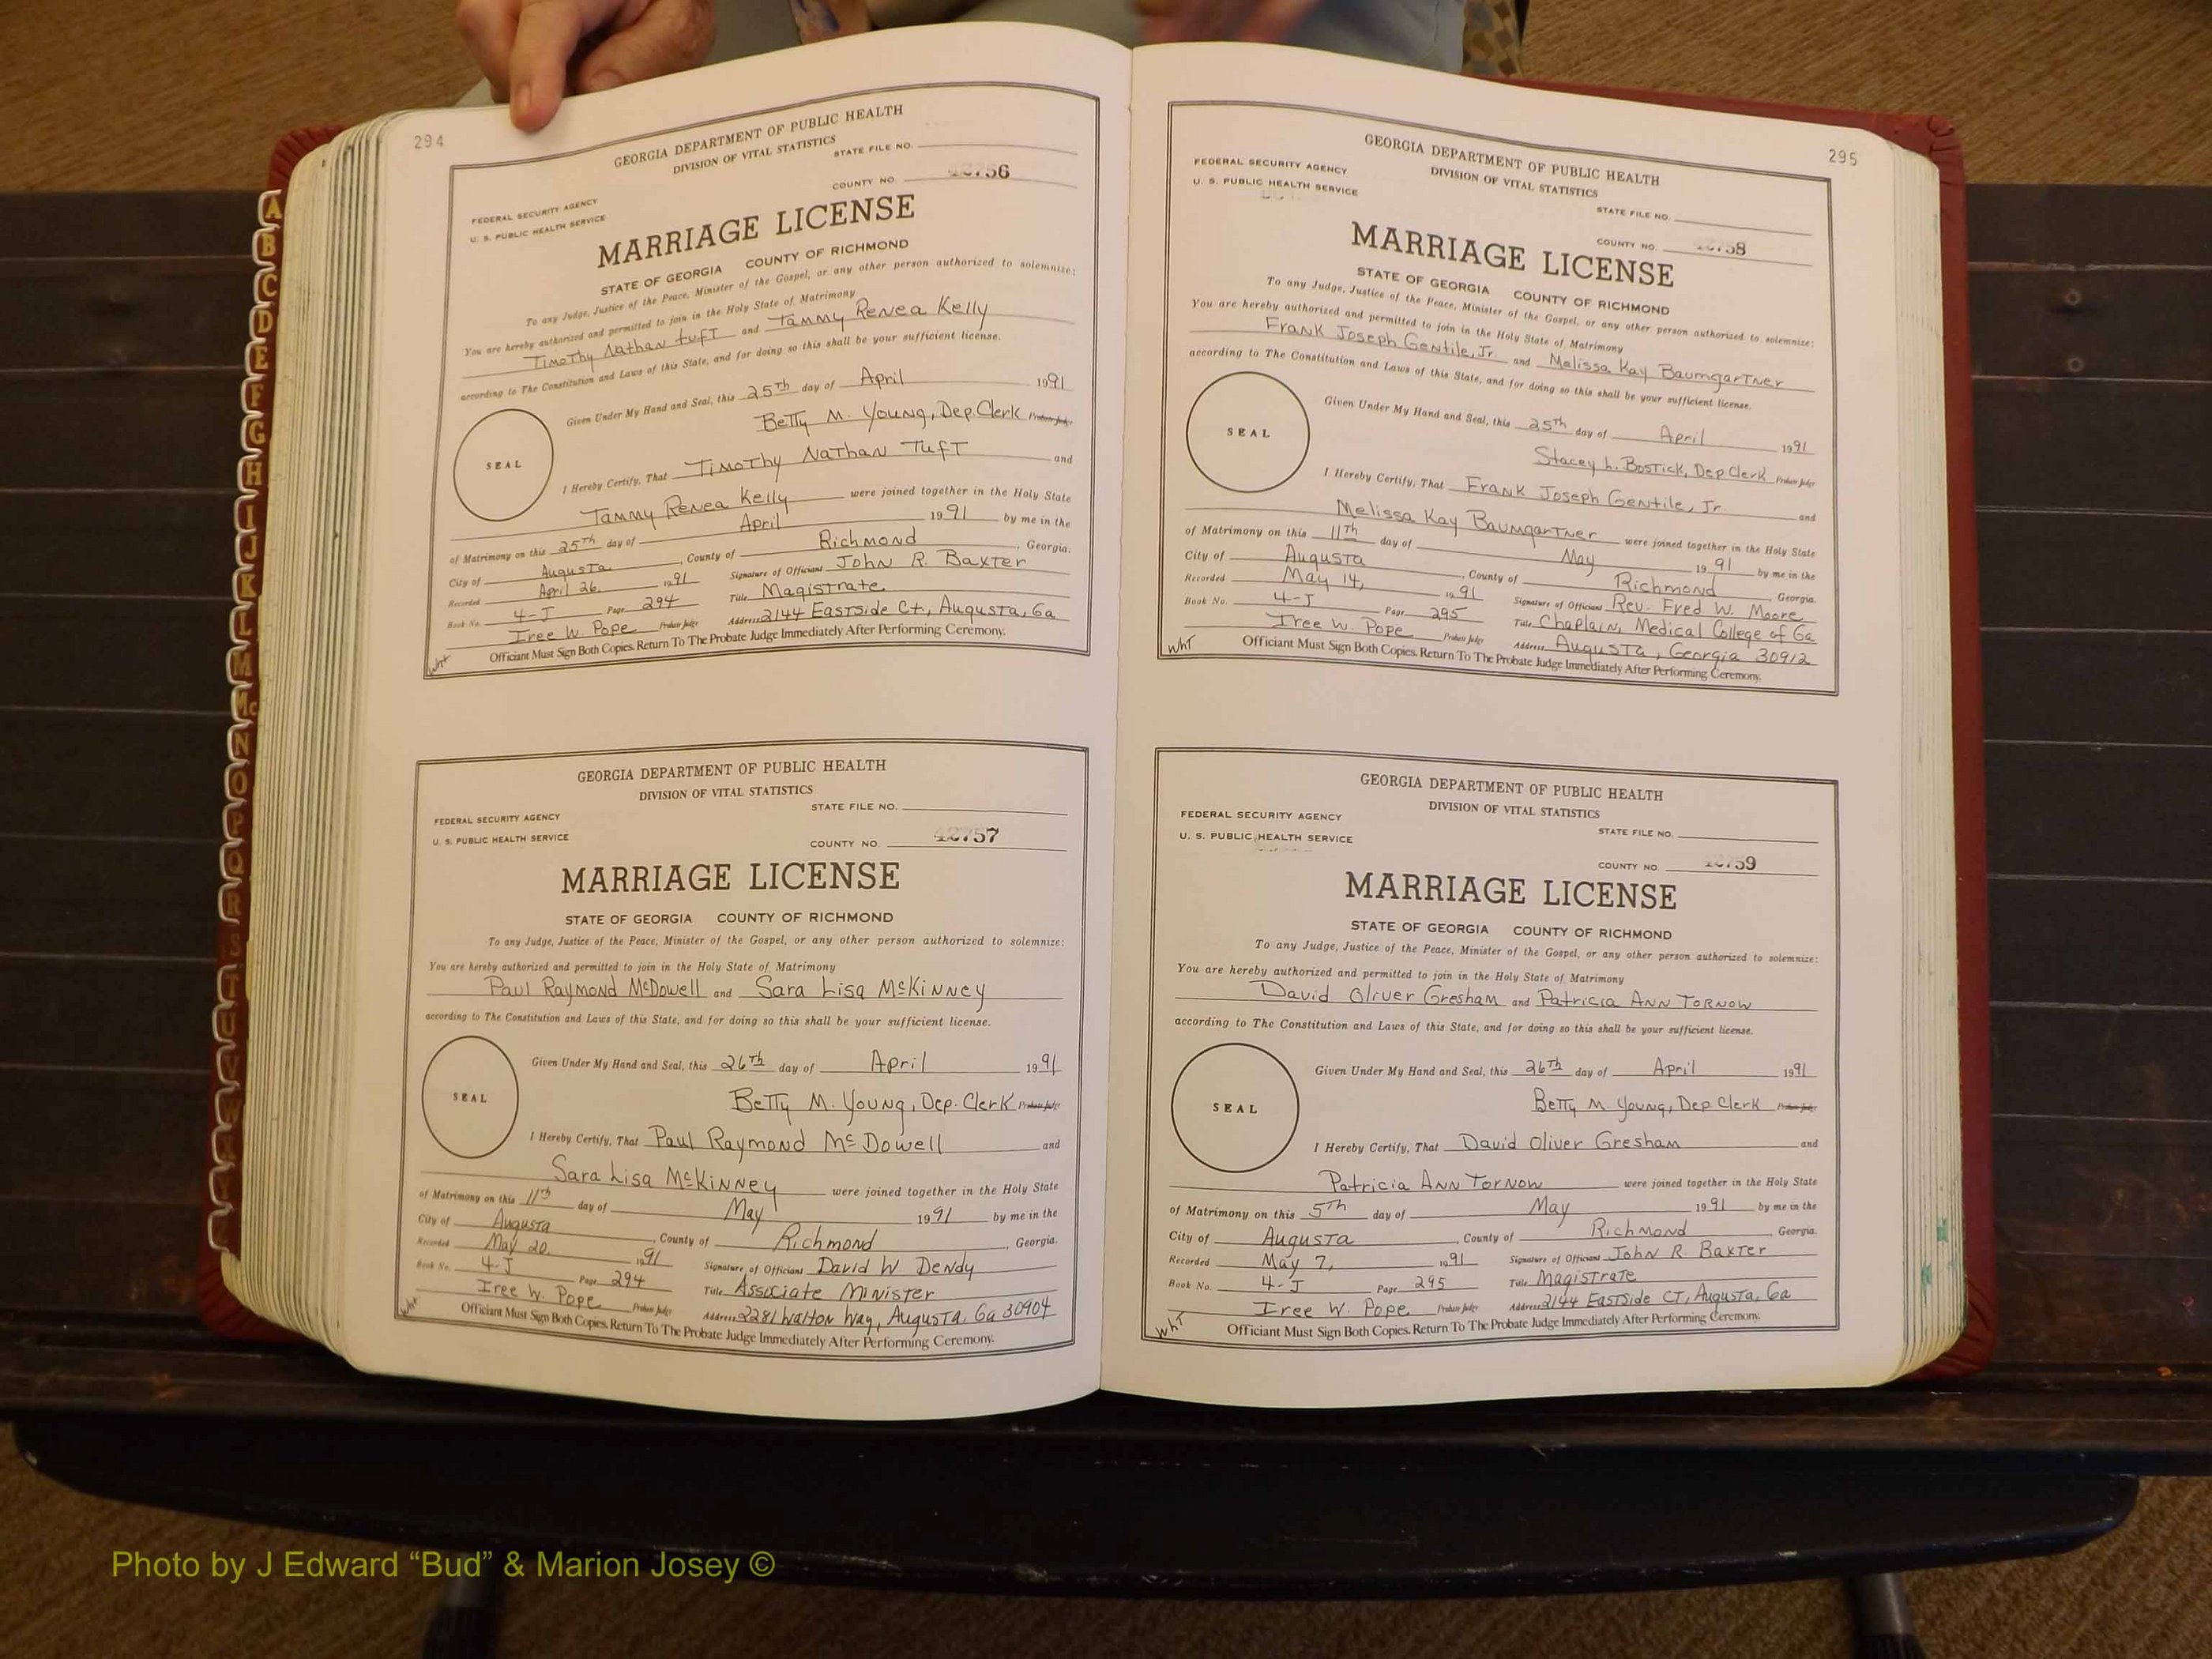 294
GEORGIA DEPARTMENT OF PUBLIC HEALTH
DIVISION OF VITAL STATISTICS
STATE FILE NO.
FEDERAL SECURITY AGENCY
U. S. PUBLIC HEALTH SERVICE
COUNTY NO. 42756
MARRIAGE LICENSE
STATE OF GEORGIA COUNTY OF RICHMOND
To any Judge, Justice of the Peace, Minister of the Gospel, or any other person authorized to solemnize:
You are hereby authorized and permitted to join in the Holy State of Matrimony
Timothy Nathan Tuft and Tammy Renea Kelly
according to The Constitution and Laws of this State, and for doing so this shall be your sufficient license.
Given Under My Hand and Seal, this 25Th day of April 1991
Betty M. Young, Dep. Clerk Probate Judge
SEAL
I Hereby Certify, That Timothy Nathan Tuft and
Tammy Renea Kelly were joined together in the Holy State
of Matrimony on this 25Th day of April 1991 by me in the
City of Augusta, County of Richmond, Georgia.
Recorded April 26, 1991 Signature of Officiant John R. Baxter
Book No. 4-J Page 294 Title Magistrate
Iree W. Pope Probate Judge Address 2144 Eastside Ct., Augusta, Ga
Officiant Must Sign Both Copies. Return To The Probate Judge Immediately After Performing Ceremony.
Wht
GEORGIA DEPARTMENT OF PUBLIC HEALTH
DIVISION OF VITAL STATISTICS
STATE FILE NO.
FEDERAL SECURITY AGENCY
U. S. PUBLIC HEALTH SERVICE
COUNTY NO. 42757
MARRIAGE LICENSE
STATE OF GEORGIA COUNTY OF RICHMOND
To any Judge, Justice of the Peace, Minister of the Gospel, or any other person authorized to solemnize:
You are hereby authorized and permitted to join in the Holy State of Matrimony
Paul Raymond McDowell and Sara Lisa McKinney
according to The Constitution and Laws of this State, and for doing so this shall be your sufficient license.
Given Under My Hand and Seal, this 26Th day of April 1991
Betty M. Young, Dep. Clerk Probate Judge
SEAL
I Hereby Certify, That Paul Raymond McDowell and
Sara Lisa McKinney were joined together in the Holy State
of Matrimony on this 11th day of May 1991 by me in the
City of Augusta, County of Richmond, Georgia.
Recorded May 20, 1991 Signature of Officiant David W. Dendy
Book No. 4-J Page 294 Title Associate Minister
Iree W. Pope Probate Judge Address 2281 Walton Way, Augusta, Ga 30904
Officiant Must Sign Both Copies. Return To The Probate Judge Immediately After Performing Ceremony.
Wht
295
GEORGIA DEPARTMENT OF PUBLIC HEALTH
DIVISION OF VITAL STATISTICS
FEDERAL SECURITY AGENCY
U. S. PUBLIC HEALTH SERVICE
STATE FILE NO.
COUNTY NO. 42758
MARRIAGE LICENSE
STATE OF GEORGIA COUNTY OF RICHMOND
To any Judge, Justice of the Peace, Minister of the Gospel, or any other person authorized to solemnize:
You are hereby authorized and permitted to join in the Holy State of Matrimony
Frank Joseph Gentile, Jr. and Melissa Kay Baumgartner
according to The Constitution and Laws of this State, and for doing so this shall be your sufficient license.
Given Under My Hand and Seal, this 25th day of April 1991
Stacey L. Bostick, Dep Clerk Probate Judge
SEAL
I Hereby Certify, That Frank Joseph Gentile, Jr. and
Melissa Kay Baumgartner were joined together in the Holy State
of Matrimony on this 11Th day of May 1991 by me in the
City of Augusta, County of Richmond, Georgia.
Recorded May 14, 1991 Signature of Officiant Rev. Fred W. Moore
Book No. 4-J Page 295 Title Chaplain, Medical College of Ga
Iree W. Pope Probate Judge Address Augusta, Georgia 30912
Officiant Must Sign Both Copies. Return To The Probate Judge Immediately After Performing Ceremony.
WhT
GEORGIA DEPARTMENT OF PUBLIC HEALTH
DIVISION OF VITAL STATISTICS
FEDERAL SECURITY AGENCY
U. S. PUBLIC HEALTH SERVICE
STATE FILE NO.
COUNTY NO. 42759
MARRIAGE LICENSE
STATE OF GEORGIA COUNTY OF RICHMOND
To any Judge, Justice of the Peace, Minister of the Gospel, or any other person authorized to solemnize:
You are hereby authorized and permitted to join in the Holy State of Matrimony
David Oliver Gresham and Patricia Ann Tornow
according to The Constitution and Laws of this State, and for doing so this shall be your sufficient license.
Given Under My Hand and Seal, this 26Th day of April 1991
Betty M. Young, Dep Clerk Probate Judge
SEAL
I Hereby Certify, That David Oliver Gresham and
Patricia Ann Tornow were joined together in the Holy State
of Matrimony on this 5Th day of May 1991 by me in the
City of Augusta, County of Richmond, Georgia.
Recorded May 7, 1991 Signature of Officiant John R. Baxter
Book No. 4-J Page 295 Title Magistrate
Iree W. Pope Probate Judge Address 2144 Eastside CT, Augusta, Ga
Officiant Must Sign Both Copies. Return To The Probate Judge Immediately After Performing Ceremony.
WhT
A
B
C
D
E
F
G
H
I
J
K
L
M
Mc
N
O
P
Q
R
S
T
U
V
W
Photo by J Edward “Bud” & Marion Josey ©